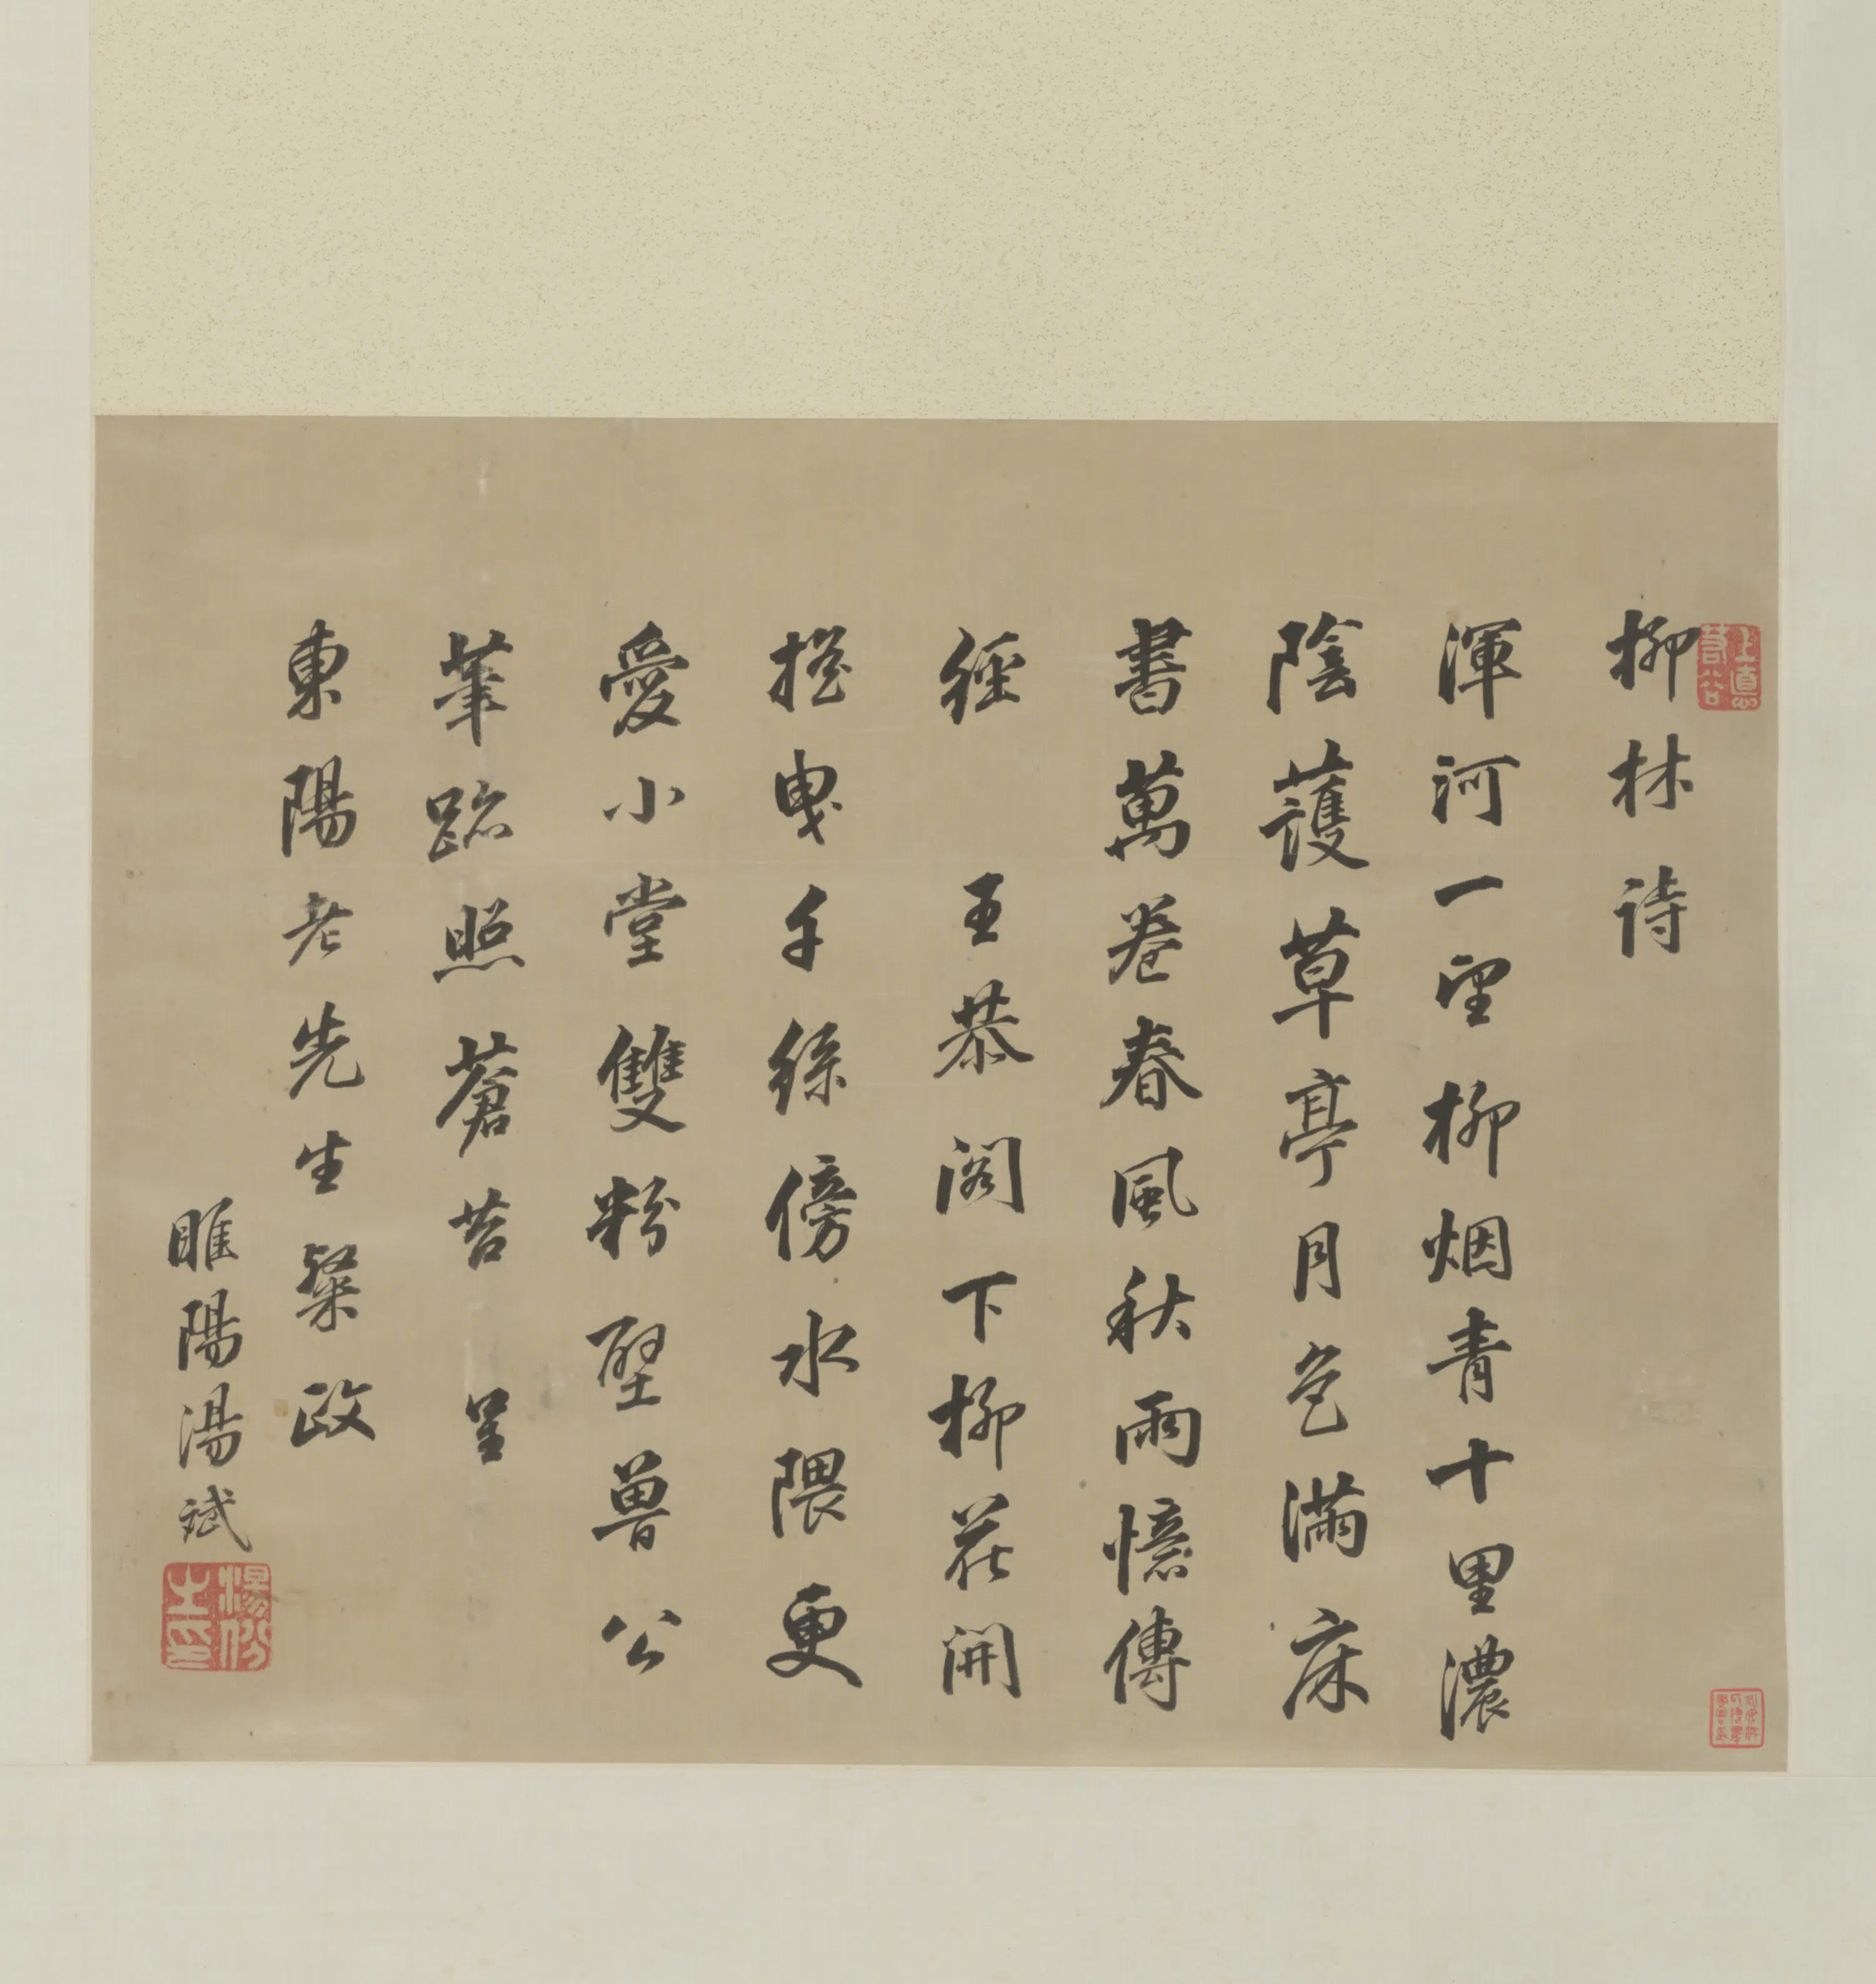 柳林詩
渾河一望柳烟青十里濃
陰護草亭月色滿床
書萬卷春風秋雨憶傳
經 王恭閣下柳花開
搖曳千絲傍水隈更
愛小堂雙粉壁魯公
筆跡照蒼苔 呈
東陽老先生粲政
睢陽湯斌